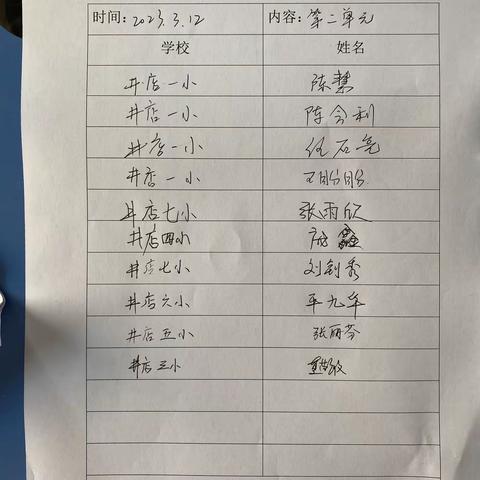 时间：2023.3.12 内容：第二单元
学校 姓名
井店一小 陈慧
井店一小 陈令利
井店一小 任石亮
井店一小 王盼盼
井店七小 张雨欣
井店四小
井店七小 刘钊秀
井店六小 平九年
井店五小 张丽芬
井店三小